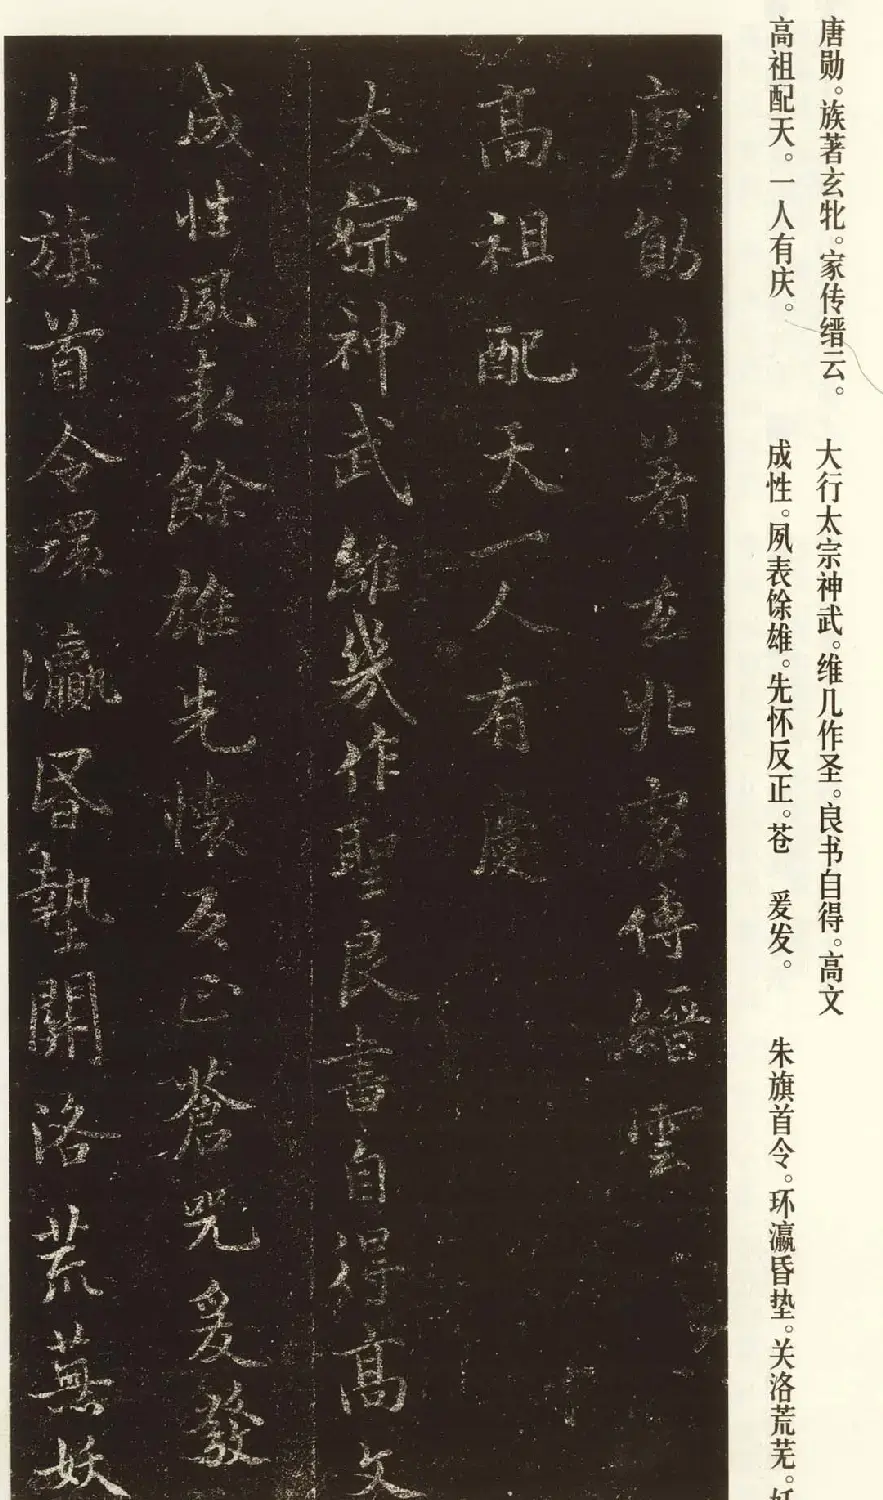 唐勋。族著玄牝。家传缙云。
高祖配天。一人有庆。
大行太宗神武。维几作圣。良书自得。高文
成性。夙表馀雄。先怀反正。苍 爰发。
朱旗首令。环瀛昏垫。关洛荒芜。妖
唐勛族著玄牝家傳縉雲
高祖配天一人有慶
太宗神武維幾作聖良書自得高文
成性夙表餘雄先懷反正蒼兕爰發
朱旗首令環瀛昬墊關洛荒蕪妖